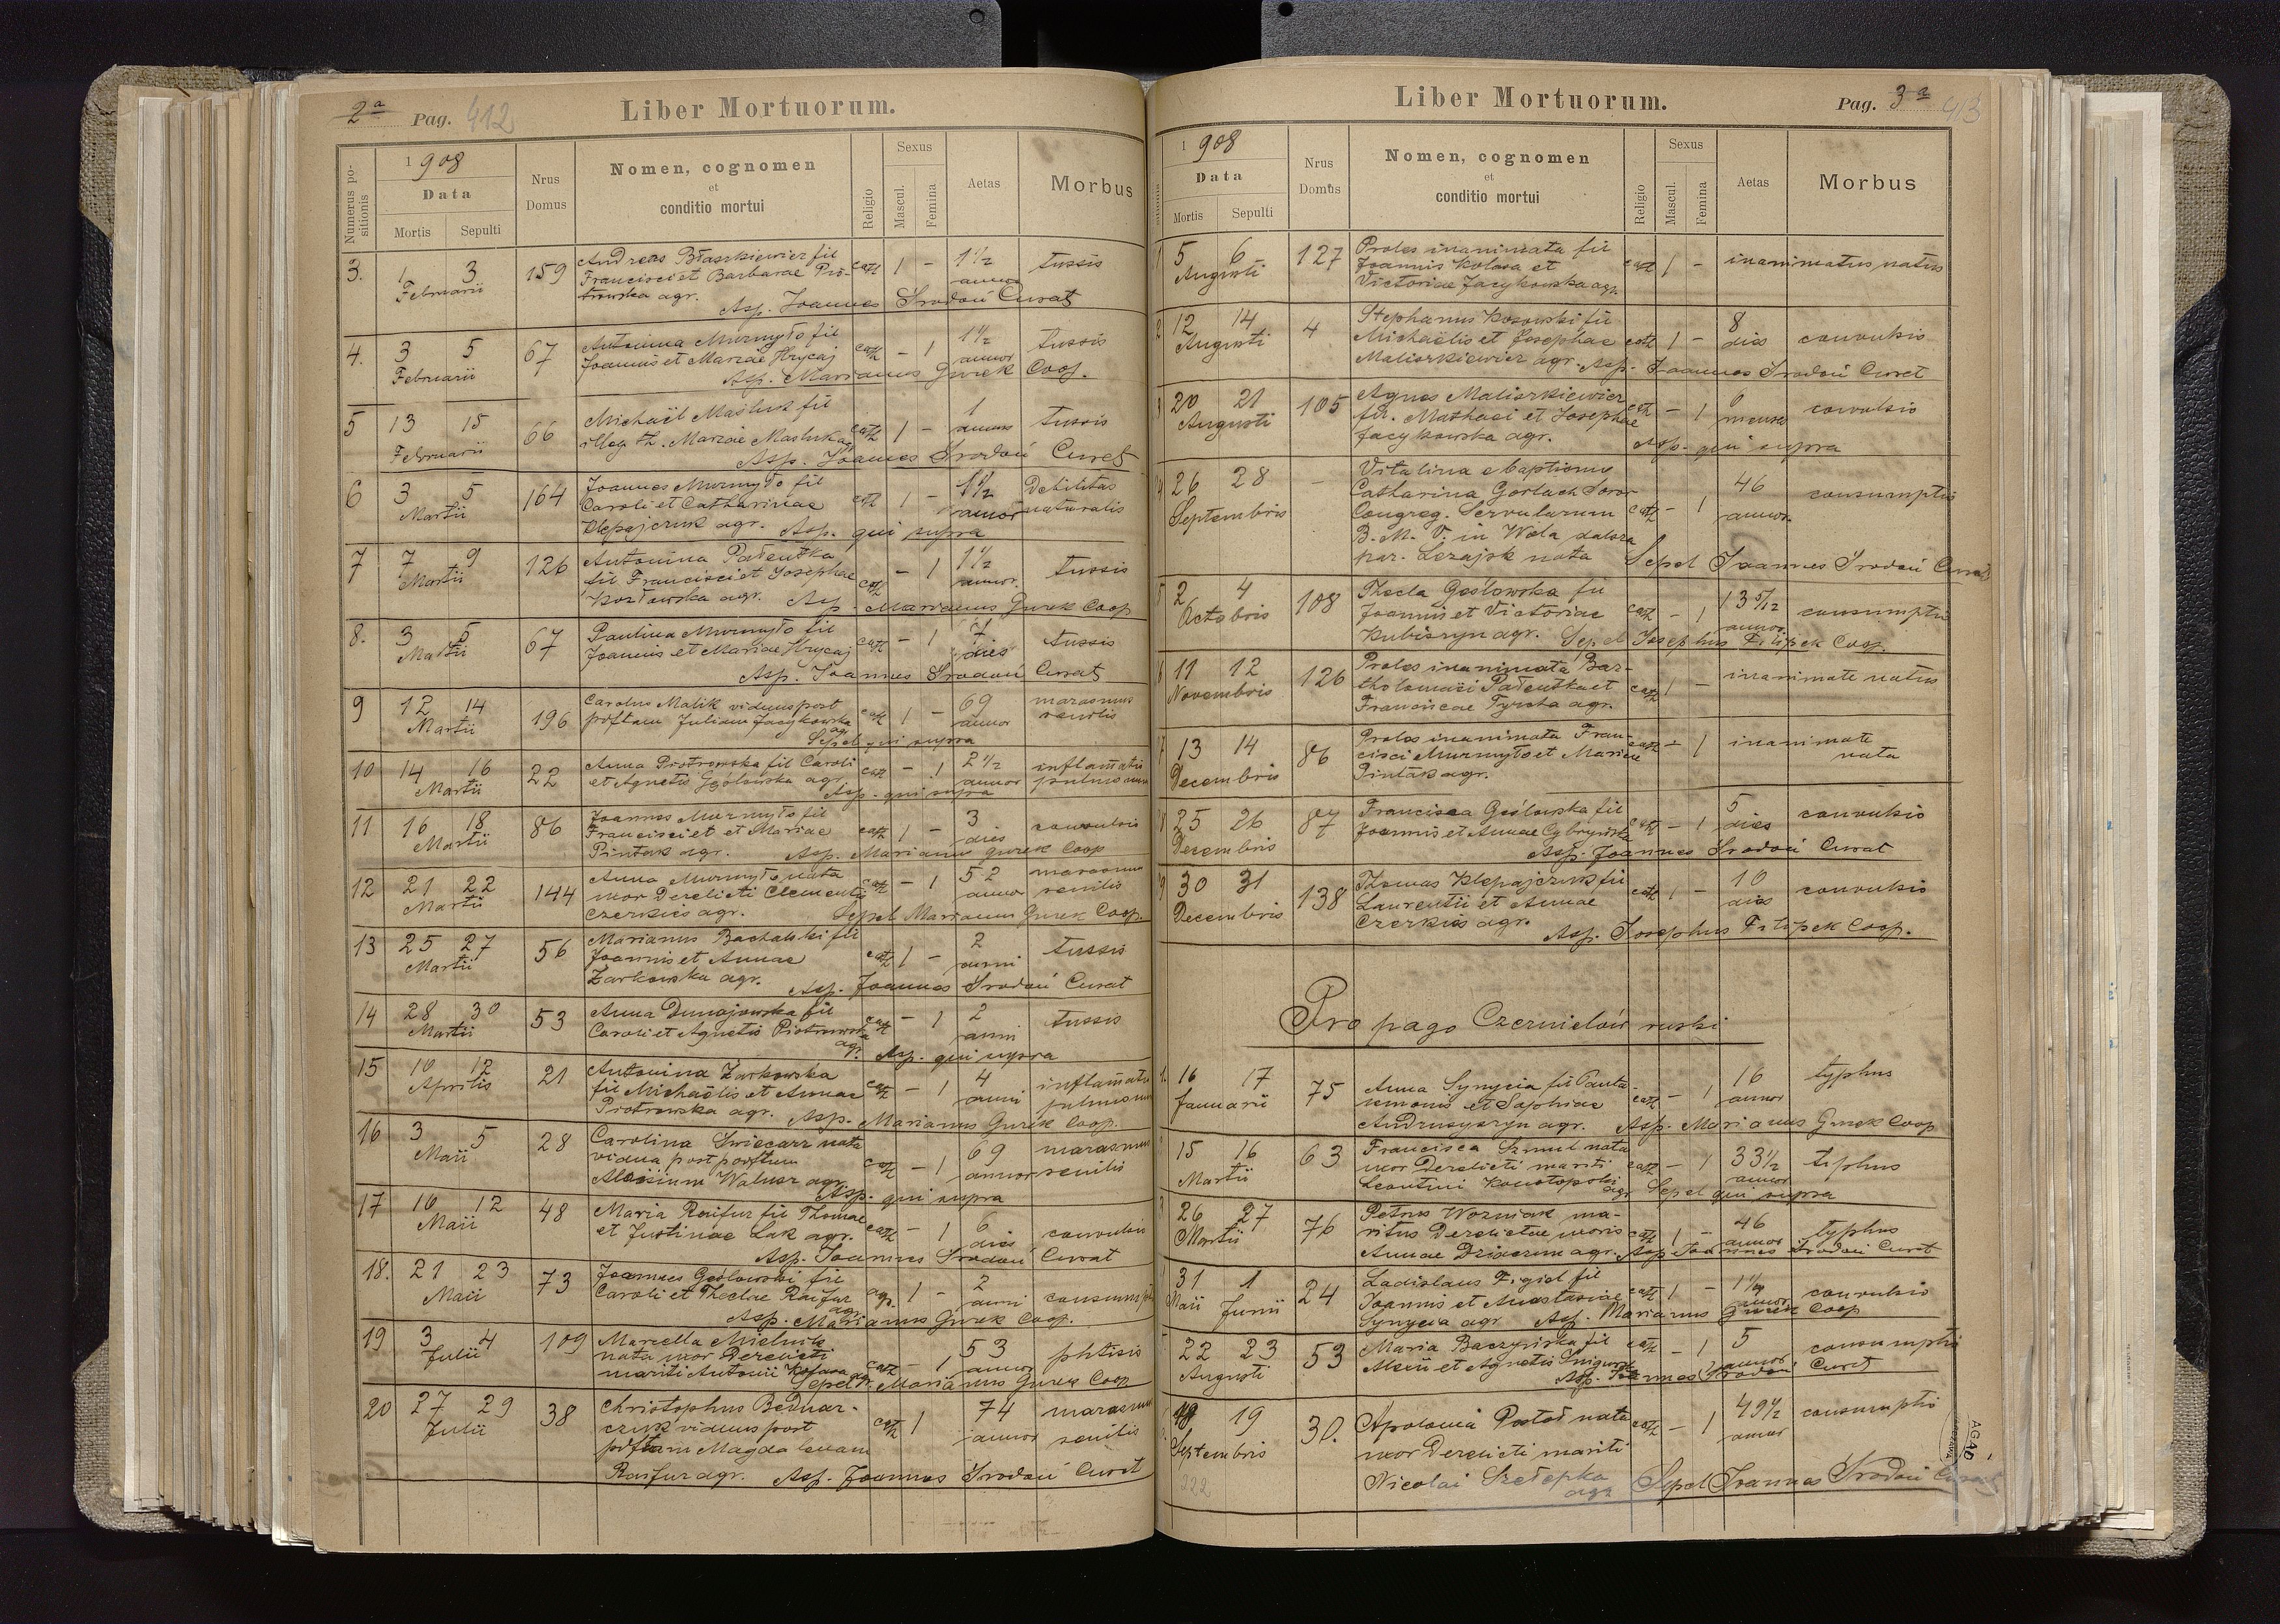 2a Pag. 412 Liber Mortuorum.
Numerus positionis
1908
Data
Mortis Sepulti
Nrus Domus
Nomen, cognomen
et
conditio mortui
Religio
Sexus
Mascul. Femina
Aetas
Morbus
3. 1 3 159 Andreas Błaszkiewicz fil cath 1 - 1½ tussis
Februarii Francisci et Barbarae Pio- annor
trowska agr. Asp. Joannes Srodoń Curat
4. 3 5 67 Antonina Murmyło fil cath - 1 1½ tussis
Februarii Joannis et Mariae Hrycaj annor
Asp. Marianus Gurek Coop.
5 13 15 66 Michaël Masluk fil cath 1 - 1 tussis
Februarii illeg. th. Mariae Masluk agr annus
Asp. Joannes Srodoń Curat
6 3 5 164 Joannes Murmyło fil cath 1 - 1½ Debilitas
Martii Caroli et Catharinae annor naturalis
Klepajczuk agr. Asp. qui supra
7 7 9 126 Antonina Pałentka - 1 1½ tussis
Martii fil Francisci et Josephae cath annor.
Kozłowska agr. Asp. Marianus Gurek Coop
8. 3 5 67 Paulina Murmyło fil cath - 1 7 tussis
Martii Joannis et Mariae Hrycaj dies
Asp. Joannes Srodoń Curat
9 12 14 196 Carolus Malik viduus post cath 1 - 69 marasmus
Martii pdftam Juliam Jacykowska agr annor senilis
Sepel qui supra
10 14 16 22 Anna Piotrowska fil Caroli cath - 1 2½ inflamatio
Martii et Agnetis Gęślowska agr. annor pulmonum
Asp. qui supra
11 16 18 86 Joannes Murmyło fil cath 1 - 3 convulsio
Martii Francisci et et Mariae dies
Pintak agr. Asp. Marianus Gurek Coop
12 21 22 144 Anna Murmyło nata cath - 1 52 marasmus
Martii uxor Derelicti Clementis annor senilis
Czerkies agr. Sepel Marianus Gurek Coop
13 25 27 56 Marianus Bachalski fil cath 1 - 2 tussis
Martii Joannis et Annae anni
Żarkowska agr. Asp. Joannes Srodoń Curat
14 28 30 53 Anna Dunajowska fil cath - 1 2 tussis
Martii Caroli et Agnetis Piotrowska anni
agr. Asp. qui supra
15 10 12 21 Antonina Żarkowska cath - 1 4 inflamatio
Aprilis fil Michaëlis et Annae anni pulmonum
Piotrowska agr. Asp. Marianus Gurek Coop.
16 3 5 28 Carolina Swiecarz nata cath - 1 69 marasmus
Maii vidua post pdftum annor senilis
Aloisium Walusz agr.
Asp. qui supra
17 10 12 48 Maria Raifur fil Thomae cath - 1 6 convulsio
Maii et Justinae Lak agr. dies
Asp. Joannes Srodoń Curat
18. 21 23 73 Joannes Gęślowski fil 1 - 2 consumptio
Maii Caroli et Theclae Raifur agr. anni
Asp. Marianus Gurek Coop.
19 3 4 109 Marcella Mielnik cath - 1 53 phtisis
Julii nata uxor Derelicti annor
mariti Antonii Kolasa agr.
Sepel Marianus Gurek Coop
20 27 29 38 Christophus Bednar- cath 1 74 marasmus
Julii czuk viduus post annor senilis
pdftam Magdalenam
Raifur agr. Asp. Joannes Srodoń Curat
Liber Mortuorum. Pag. 3a 413
1908
Data
Mortis Sepulti
Nrus Domus
Nomen, cognomen
et
conditio mortui
Religio
Sexus
Mascul. Femina
Aetas
Morbus
5 6 127 Proles inanimata fil cath 1 - inanimatus natus
Augusti Joannis Kolasa et
Victoriae Jacykowska agr.
12 14 4 Stephanus Kosowski fil cath 1 - 8 convulsio
Augusti Michaëlis et Josephae dies
Maliszkiewicz agr. Asp. Joannes Srodoń Curat
20 21 105 Agnes Maliszkiewicz cath - 1 6 convulsio
Augusti fil. Mathaei et Josephae menses
Jacykowska agr. Asp. qui supra
26 28 - Vitalina e baptismo cath - 1 46 consumptio
Septembris Catharina Gorlach Soror annor.
Congreg. Servularum
B. M. V. in Wola zalesz
par. Leżajsk nata Sepel Joannes Srodoń Curat
2 4 108 Thecla Gęślowska fil cath - 1 13 5/12 consumptio
Octobris Joannis et Victoriae annor
Kubiszyn agr. Sepel Josephus Filipek Coop.
11 12 126 Proles inanimata Bar- cath 1 - inanimate natus
Novembris tholomaei Pałentka et
Franciscae Tyrcha agr.
13 14 86 Proles inanimata Fran- cath - 1 inanimate
Decembris cisci Murmyło et Mariae nata
Pintak agr.
25 26 87 Francisca Gęślowska fil cath - 1 5 convulsio
Decembris Joannis et Annae dies
Asp. Joannes Srodoń Curat
30 31 138 Thomas Klepajczuk fil cath 1 - 10 convulsio
Decembris Laurentii et Annae dies
Czerkies agr.
Asp. Josephus Filipek Coop.
Pro pago Czernielów ruski
1. 16 17 75 Anna Synycia fil Panta- cath - 1 16 typhus
Januarii lemonis et Sophiae annor
Andrusyszyn agr. Asp. Marianus Gurek Coop
15 16 63 Francisca Szmul nata cath - 1 33½ tiphus
Martii uxor Derelicti mariti annor
Leontini Konotopski agr Sepel qui supra
26 27 76 Petrus Wozniak ma- cath 1 - 46 typhus
Martii ritus Derelictae uxoris annor
Annae agr. Asp Joannes Srodoń Curat
31 1 24 Ladislaus Figiel fil cath 1 - convulsio
Maii Junii Joannis et Anastasiae annor
Synycia agr Asp. Marianus Gurek Coop
22 23 53 Maria Baczyńska fil cath - 1 5 consumptio
Augusti Alexii et Agnetis annor
Asp. Joannes Srodoń Curat
19 30. Apolonia Postoł nata cath - 1 49½ consumptio
Septembris uxor Derelicti mariti annor
222 Nicolai Szełepka agr Sepel Joannes Srodoń Curat
AGAD
WARSZAWA